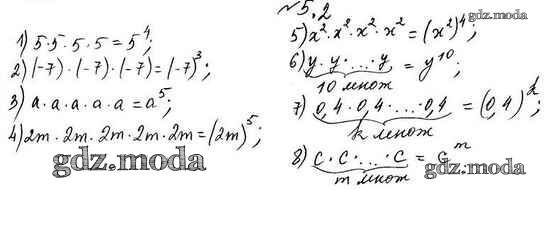 №5.2
1) 5·5·5·5=5⁴;
2) (-7)·(-7)·(-7)=(-7)³;
3) a·a·a·a·a=a⁵;
4) 2m·2m·2m·2m·2m=(2m)⁵;
5) x²·x²·x²·x²=(x²)⁴;
6) y·y·...·y=y¹⁰;
10 множ
7) 0,4·0,4·...·0,4=(0,4)ᵏ;
k множ
8) c·c·...·c=cᵐ
m множ
gdz.moda
gdz.moda
gdz.moda